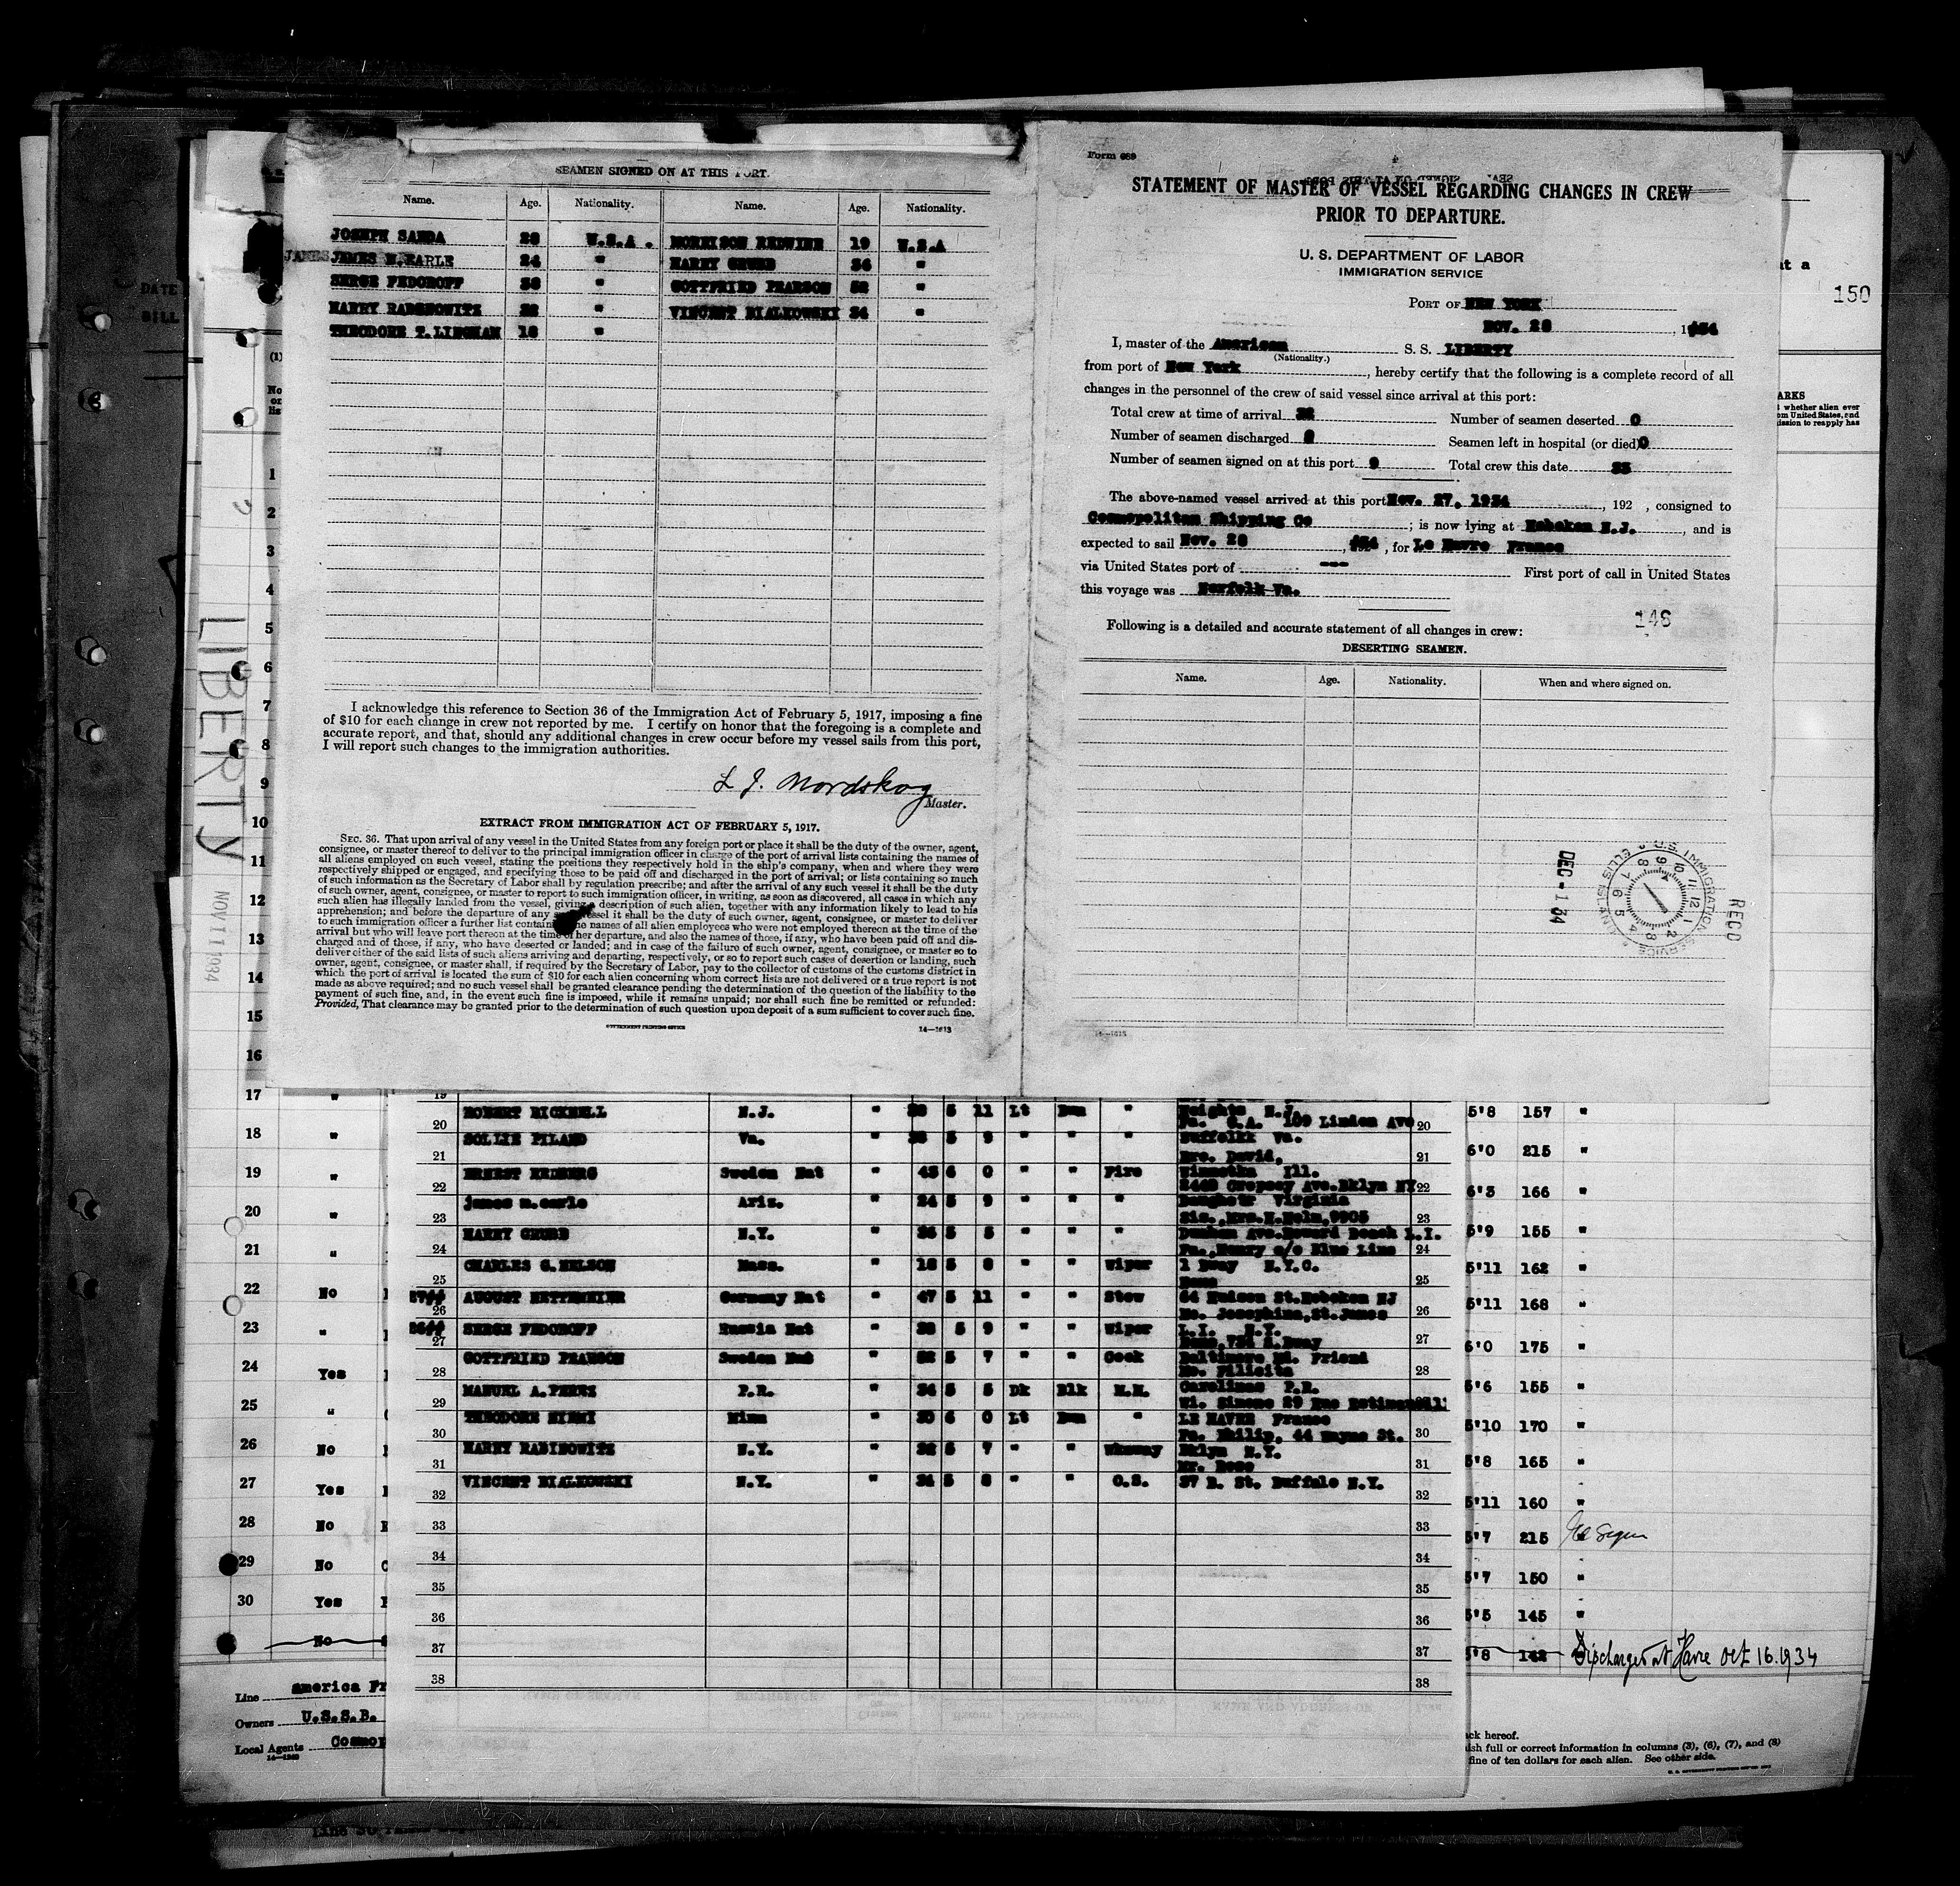 SEAMEN SIGNED ON AT THIS PORT.
Name. Age. Nationality. Name. Age. Nationality.
JOSEPH SANDA 28 U.S.A. MORRISON REDWINE 19 U.S.A
JAMES JAMES M. EARLE 24 " HARRY GRUBB 34 "
SERGE FEDOROFF 38 " GOTTFRIED PEARSON 52 "
HARRY RABINOWITZ " VINCENT BIALKOWSKI 34 "
THEODORE T. LINGMAN 18 "
I acknowledge this reference to Section 36 of the Immigration Act of February 5, 1917, imposing a fine
of $10 for each change in crew not reported by me. I certify on honor that the foregoing is a complete and
accurate report, and that, should any additional changes in crew occur before my vessel sails from this port,
I will report such changes to the immigration authorities.
L J. Nordskog
Master.
EXTRACT FROM IMMIGRATION ACT OF FEBRUARY 5, 1917.
SEC. 36. That upon arrival of any vessel in the United States from any foreign port or place it shall be the duty of the owner, agent,
consignee, or master thereof to deliver to the principal immigration officer in charge of the port of arrival lists containing the names of
all aliens employed on such vessel, stating the positions they respectively hold in the ship's company, when and where they were
respectively shipped or engaged, and specifying those to be paid off and discharged in the port of arrival; or lists containing so much
of such information as the Secretary of Labor shall by regulation prescribe; and after the arrival of any such vessel it shall be the duty
of such owner, agent, consignee, or master to report to such immigration officer, in writing, as soon as discovered, all cases in which any
such alien has illegally landed from the vessel, giving a description of such alien, together with any information likely to lead to his
apprehension; and before the departure of any vessel it shall be the duty of such owner, agent, consignee, or master to deliver
to such immigration officer a further list containing the names of all alien employees who were not employed thereon at the time of the
arrival but who will leave port thereon at the time of her departure, and also the names of those, if any, who have been paid off and dis-
charged and of those, if any, who have deserted or landed; and in case of the failure of such owner, agent, consignee, or master so to
deliver either of the said lists of such aliens arriving and departing, respectively, or so to report such cases of desertion or landing, such
owner, agent, consignee, or master shall, if required by the Secretary of Labor, pay to the collector of customs of the customs district in
which the port of arrival is located the sum of $10 for each alien concerning whom correct lists are not delivered or a true report is not
made as above required; and no such vessel shall be granted clearance pending the determination of the question of the liability to the
payment of such fine, and, in the event such fine is imposed, while it remains unpaid; nor shall such fine be remitted or refunded:
Provided, That clearance may be granted prior to the determination of such question upon deposit of a sum sufficient to cover such fine.
GOVERNMENT PRINTING OFFICE 14—1613
Form 689
STATEMENT OF MASTER OF VESSEL REGARDING CHANGES IN CREW
PRIOR TO DEPARTURE.
U. S. DEPARTMENT OF LABOR
IMMIGRATION SERVICE
PORT OF NEW YORK
NOV. 28, 1934
I, master of the American S. S. LIBERTY
(Nationality.)
from port of New York, hereby certify that the following is a complete record of all
changes in the personnel of the crew of said vessel since arrival at this port:
Total crew at time of arrival 32 Number of seamen deserted 0
Number of seamen discharged Seamen left in hospital (or died) 0
Number of seamen signed on at this port 9 Total crew this date 33
The above-named vessel arrived at this port Nov. 27, 1934, 192 , consigned to
Cosmopolitan Shipping Co; is now lying at Hoboken N.J., and is
expected to sail Nov. 28, 34, for Le Havre France
via United States port of --- First port of call in United States
this voyage was Norfolk Va.
146
Following is a detailed and accurate statement of all changes in crew:
DESERTING SEAMEN.
Name. Age. Nationality. When and where signed on.
U.S. IMMIGRATION SERVICE ELLIS ISLAND
RECD
DEC -1 34
14—1613
150
DATE
BILL
LIBERTY
NOV 11 1934
at a
ARKS
whether alien ever
om United States, and
ission to reapply has
1
2
3
4
5
6
7
8
9
10
11
12
13
14
15
16
17 "
18 "
19 "
20 "
21 "
22 No
23 "
24 Yes
25 "
26 No
27 Yes
28 No
29 No
30 Yes
No
19
ROBERT BICKNELL N.J. " 5 11 Lt Bun " Heights N.J.
20 Fa. G.A. 109 Linden Ave 20
SOLLIE PILAND Va. " 38 5 9 " " " Suffolkk Va.
21 Bro. David, 21
ERNEST HEDBERG Sweden Nat " 43 6 0 " " Fire Winnetka Ill.
22 2449 Cropsey Ave. Bklyn NY 22
james m. earle Ariz. " 24 5 9 " " " Daughetr Virginia
23 Sis., Mrs. H. Helm, 9905 23
HARRY GRUBB N.Y. " 34 5 5 " " " Ave. Howard Beach L.I.
24 Fa., Henry c/o Blue Line 24
CHARLES G. NELSON Mass. " 18 5 8 " " Wiper 1 Bway N.Y.C.
25 None 25
AUGUST HETTEMEIER Germany Nat " 47 5 11 " " Stew 64 Hudson St. Hoboken NJ
26 Mo. Josephina, St. James 26
SERGE FEDOROFF Russia Nat " 38 5 9 " " Wiper L.I. N.Y.
27 27
GOTTFRIED PEARSON Sweden Nat " 52 5 7 " " Cook Baltimore Md. Friend
28 Mo. Filicita 28
MANUEL A. PEREZ P.R. " 34 5 5 Dk Blk M.M. Carolinas P.R.
29 Wi. Simone 29 Rue
THEODORE NIEMI Minn " 30 6 0 Lt Bun " LE HAVRE France
30 Fa. Philip, 44 Wayne St. 30
HARRY RABINOWITZ N.Y. " 5 7 " " Wkaway Bklyn N.Y.
31 Mr. Rose 31
VINCENT BIALKOWSKI N.Y. " 34 5 8 " " O.S. 37 B. St. Buffalo N.Y.
32 32
33 33
34 34
35 35
36 36
37 37
38 38
5'8 157 "
6'0 215 "
6'3 166 "
5'9 155 "
5'11 162 "
5'11 168 "
6'0 175 "
5'6 155 "
5'10 170 "
5'8 165 "
5'11 160 "
5'7 215 "
5'7 150 "
5'5 145 "
5'8 142 Discharged at Havre Oct 16.1934
Line America Fr
Owners U.S.S.B.
Local Agents Cosmop
14—1240
ck hereof.
ish full or correct information in columns (3), (6), (7), and (8)
fine of ten dollars for each alien. See other side.